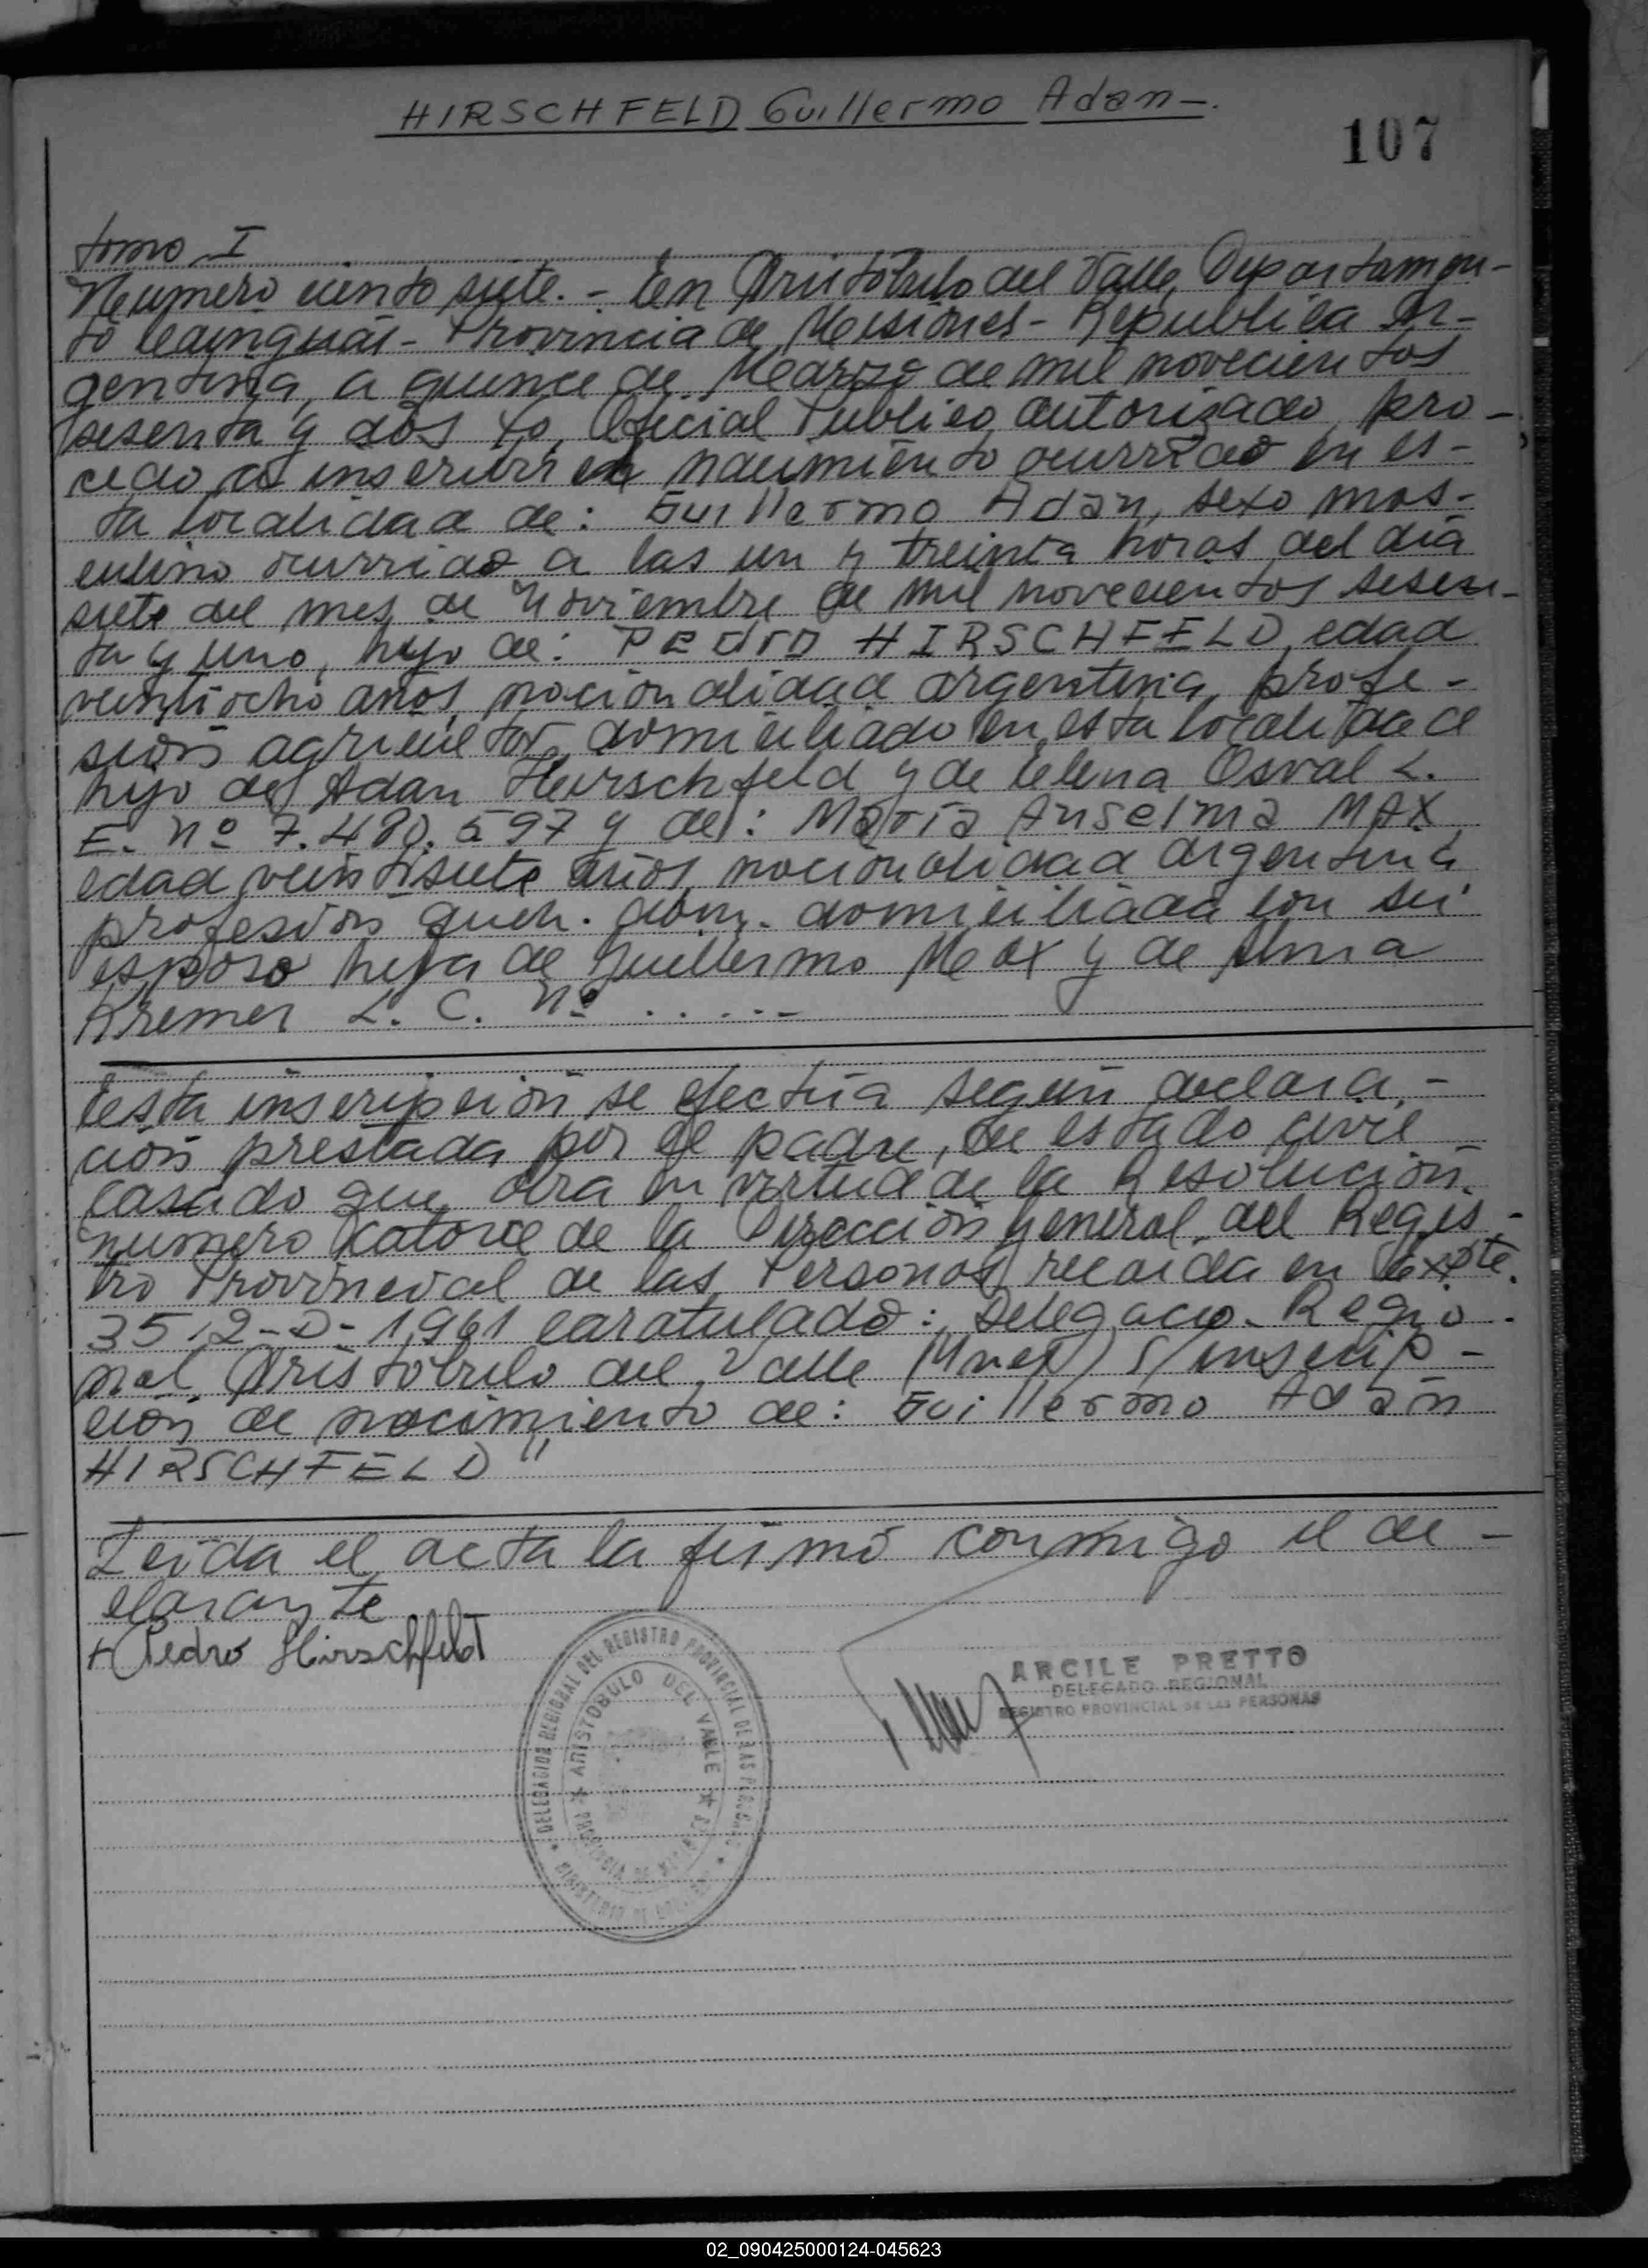 HIRSCHFELD Guillermo Adan-.
107
tomo I
Numero ciento siete.- En Aristóbulo del Valle, Departamen-
to Cainguás - Provincia de Misiones - Republica Ar-
gentina, a quince de Marzo de mil novecientos
sesenta y dos Yo, Oficial Publico autorizado, pro-
cedo a inscribir el nacimiento ocurrido en es-
ta localidad de: Guillermo Adan, sexo mas-
culino ocurrido a las un y treinta horas del día
siete del mes de Noviembre de mil novecientos sesen-
ta y uno, hijo de: Pedro HIRSCHFELD, edad
veintiocho años, nacionalidad argentina, profe-
sión agricultor, domiciliado en esta localidad
hijo de Adan Hirschfeld y de Elena Osval L.
E. Nº 7.480.597 y de: María Anselma MAX,
edad veintisiete años, nacionalidad argentina
profesión queh. dom. domiciliada con su
esposo hija de Guillermo Max y de Alma
Kremer L. C. Nº .....-
Esta inscripción se efectúa según declara-
ción prestada por el padre, de estado civil
casado que obra en virtud de la Resolución
numero catorce de la Dirección General del Regis-
tro Provincial de las Personas recaída en Expte.
3512-D-1961 caratulado: Delegacio. Regio-
nal Aristóbulo del Valle (Mnes) S/ inscrip-
ción de nacimiento de: Guillermo Adán
HIRSCHFELD"
Leída el acta la firmó conmigo el de-
clarante
+ Pedro Hirschfeld
DELEGACION REGIONAL DEL REGISTRO PROVINCIAL DE LAS PERSONAS
ARISTOBULO DEL VALLE
PROVINCIA DE MISIONES
ARCILE PRETTO
DELEGADO REGIONAL
REGISTRO PROVINCIAL DE LAS PERSONAS
02_090425000124-045623